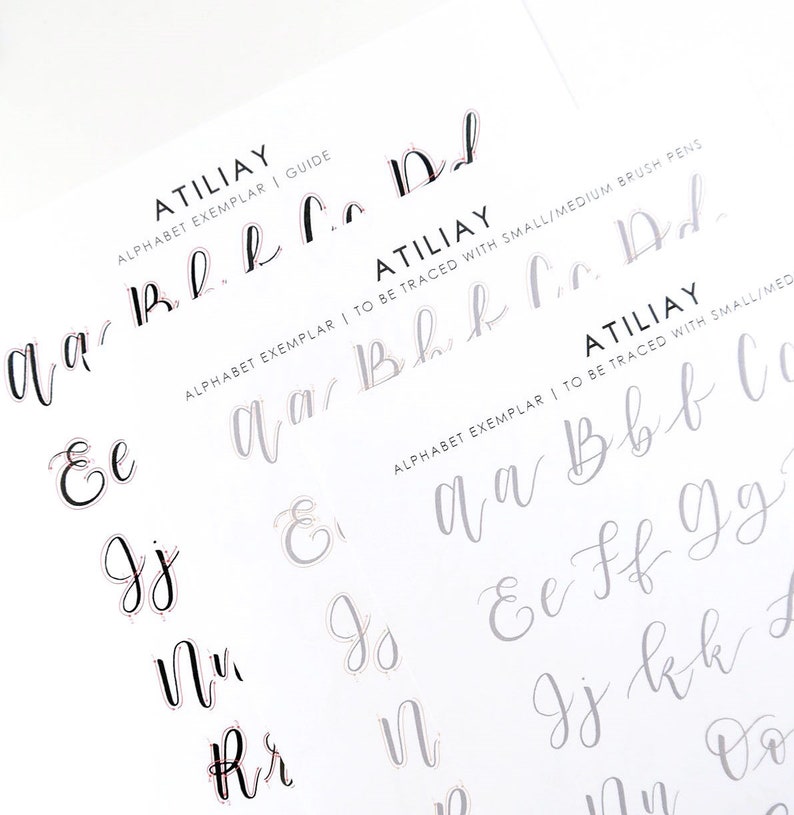 ATILIAY
ALPHABET EXEMPLAR | GUIDE
Aa Bb b Cc Dd
Ee
Jj
Nn
Rr
ATILIAY
ALPHABET EXEMPLAR | TO BE TRACED WITH SMALL/MEDIUM BRUSH PENS
Aa Bb b Cc Dd
Ee
Jj
N
R
ATILIAY
ALPHABET EXEMPLAR | TO BE TRACED WITH SMALL/MED
Aa Bb b Cc
Ee Ff f Gg
Jj Kk k
Nn Oo